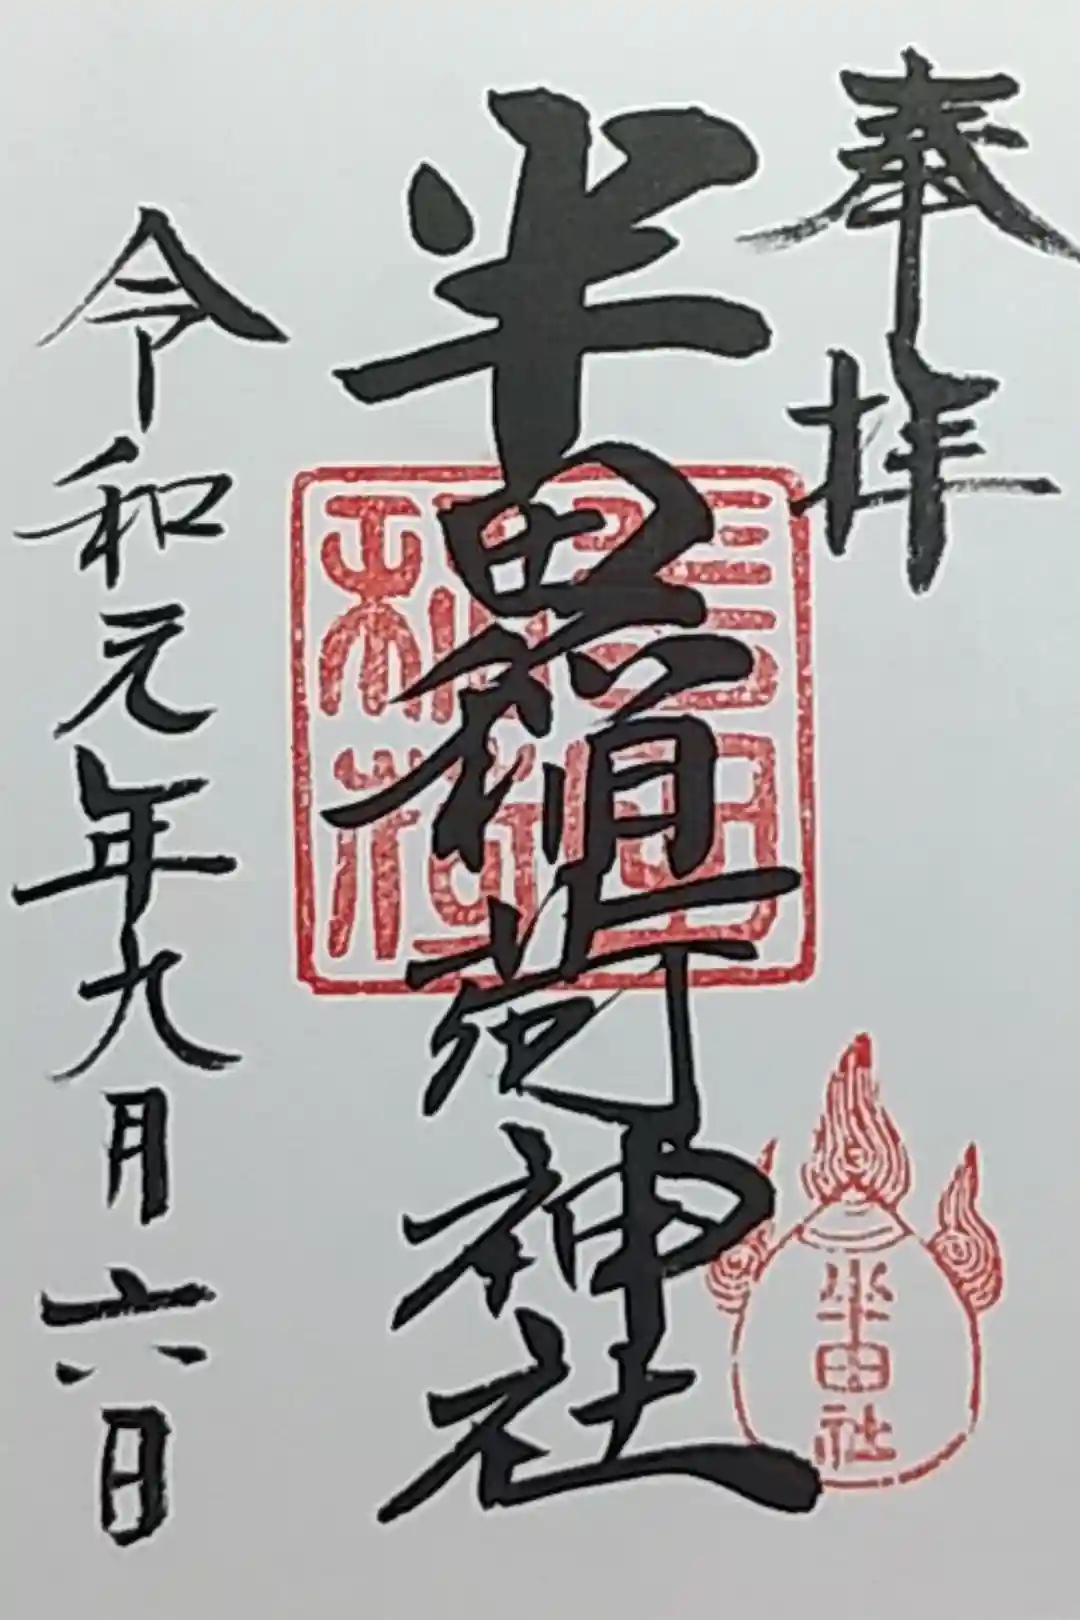 奉拝
半田稲荷神社
半田稲荷
半田社
令和元年九月六日